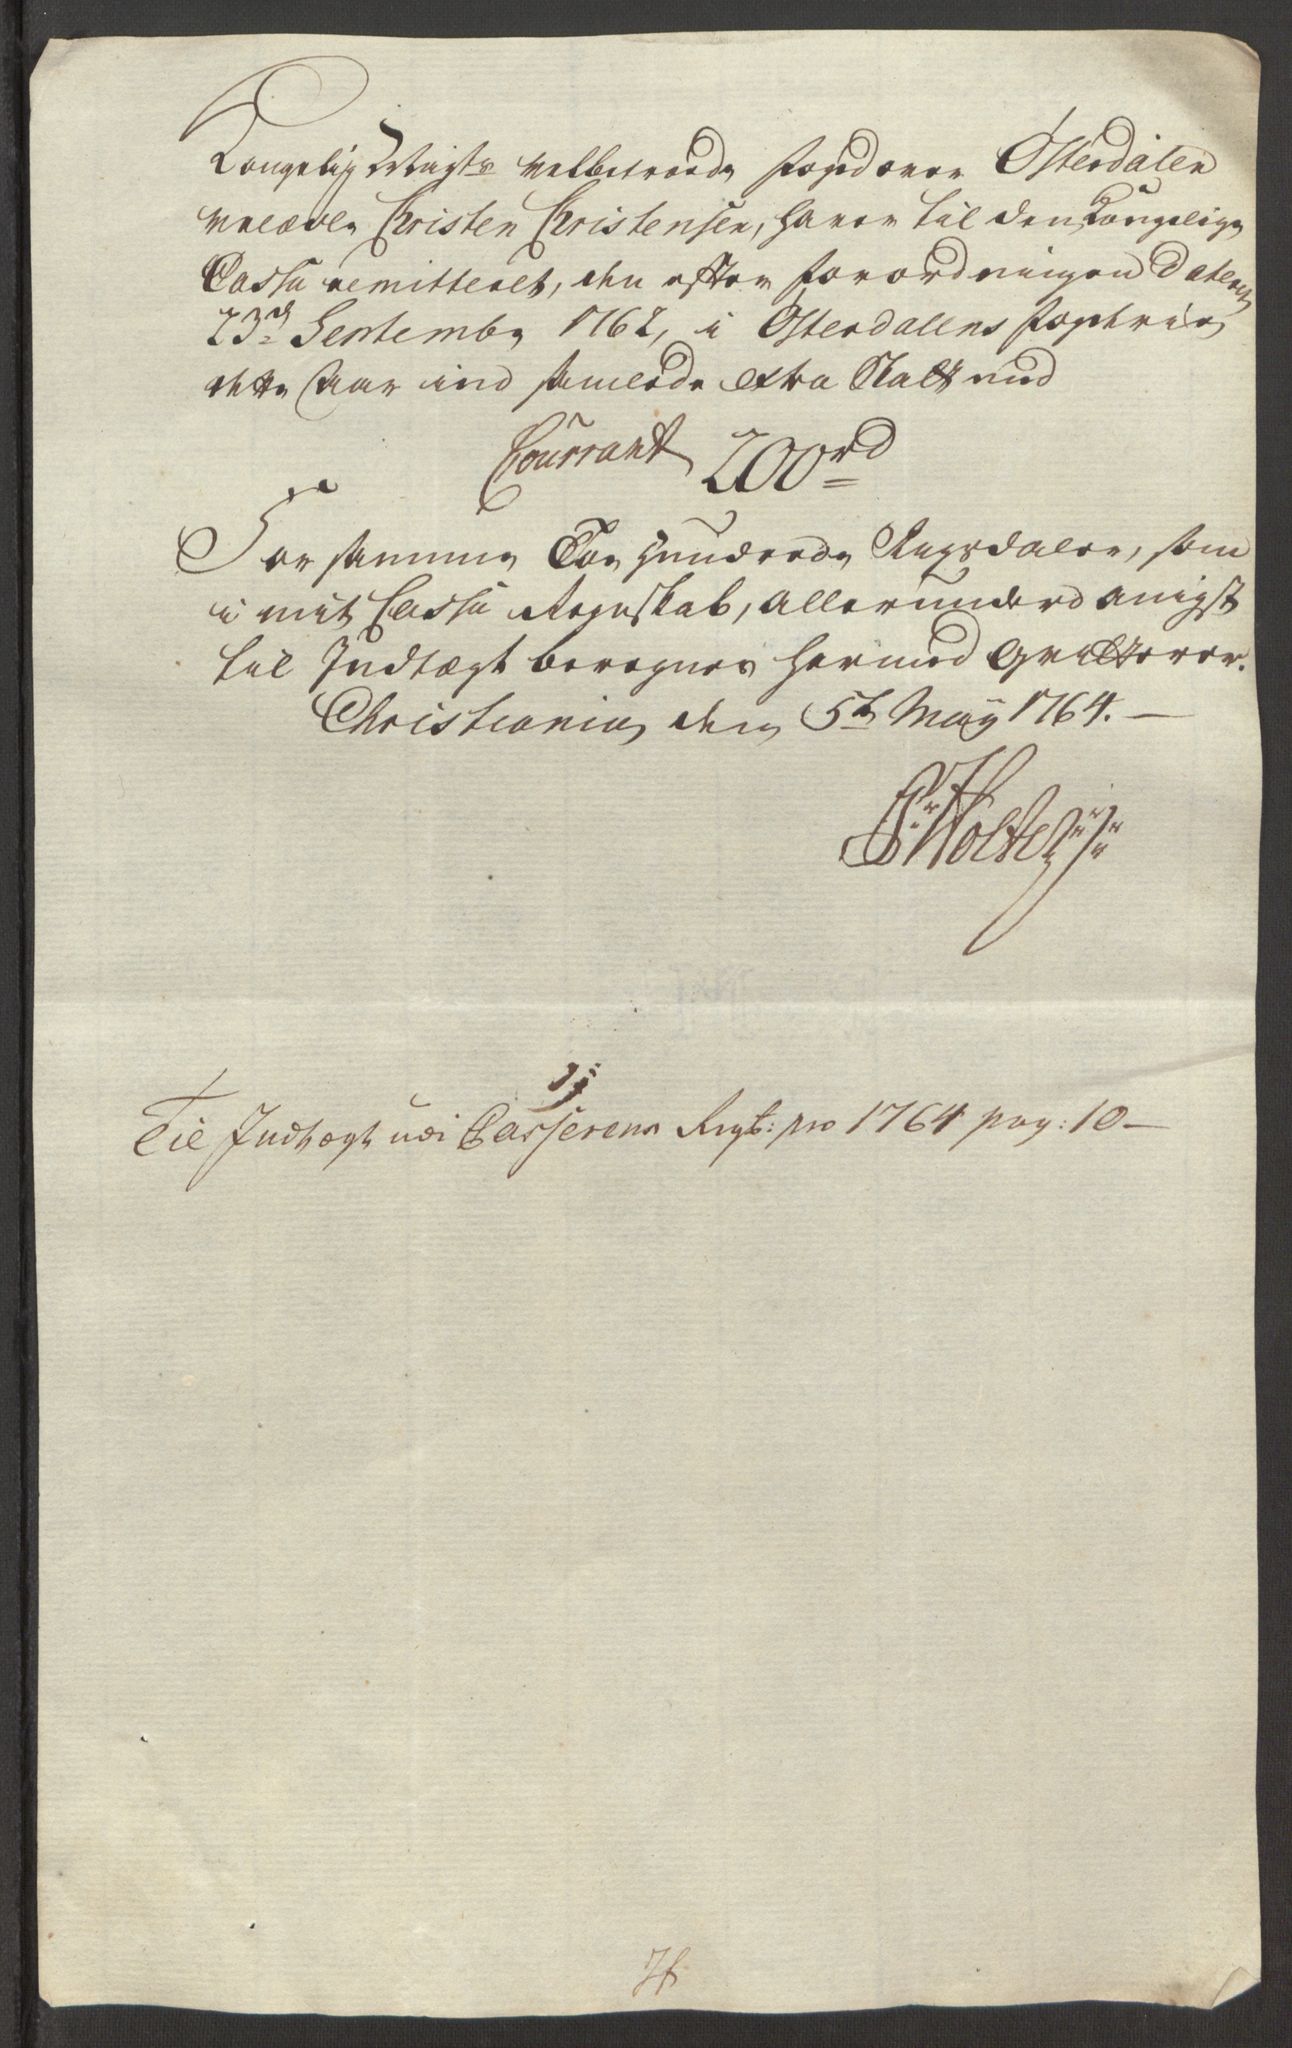 Kongelig Mayts velbetroede foged over Österdalen
velædle Christen Christensen, haver til den Kongelige
Cassa remitteret, den efter forordningen dateret
23d Septembr 1762, i Österdalens fogderie
dette Aar ind samlede extra Skatt med
Courrant 200 rd
For samme Toe Hundrede Rigsdaler, som
i mit Cassa Regnskab, allerunderdanigst
til Indtægt beregnes hermed qvitterer.
Christiania den 5te May 1764.
P. Holte
Til Indtægt udi Casserens Regnsk: pro 1764 pag: 10